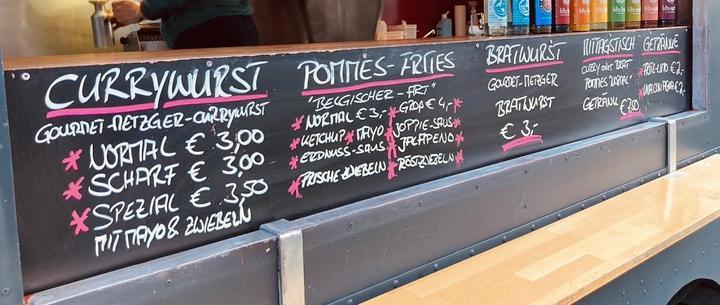 CURRYWURST
GOURMET-METZGER-CURRYWURST
NORMAL € 3,00
SCHARF € 3,00
SPEZIAL € 3,50
MIT MAYO & ZWIEBELN
POMMES-FRITES
"BELGISCHER-ART"
NORMAL € 3,-
KETCHUP MAYO
ERDNUSS-SAUS
FRISCHE-ZWIEBELN
GROß € 4,-
JOPPIE-SAUS
JALAPENO
RÖSTZWIEBELN
BRATWURST
GOURMET-METZGER
BRATWURST
€ 3,-
MITTAGSTISCH
CURRY oder BRAT
POMMES "NORMAL"
GETRÄNK € 7,50
GETRÄNKE
FRITZ-LIMO € 2,-